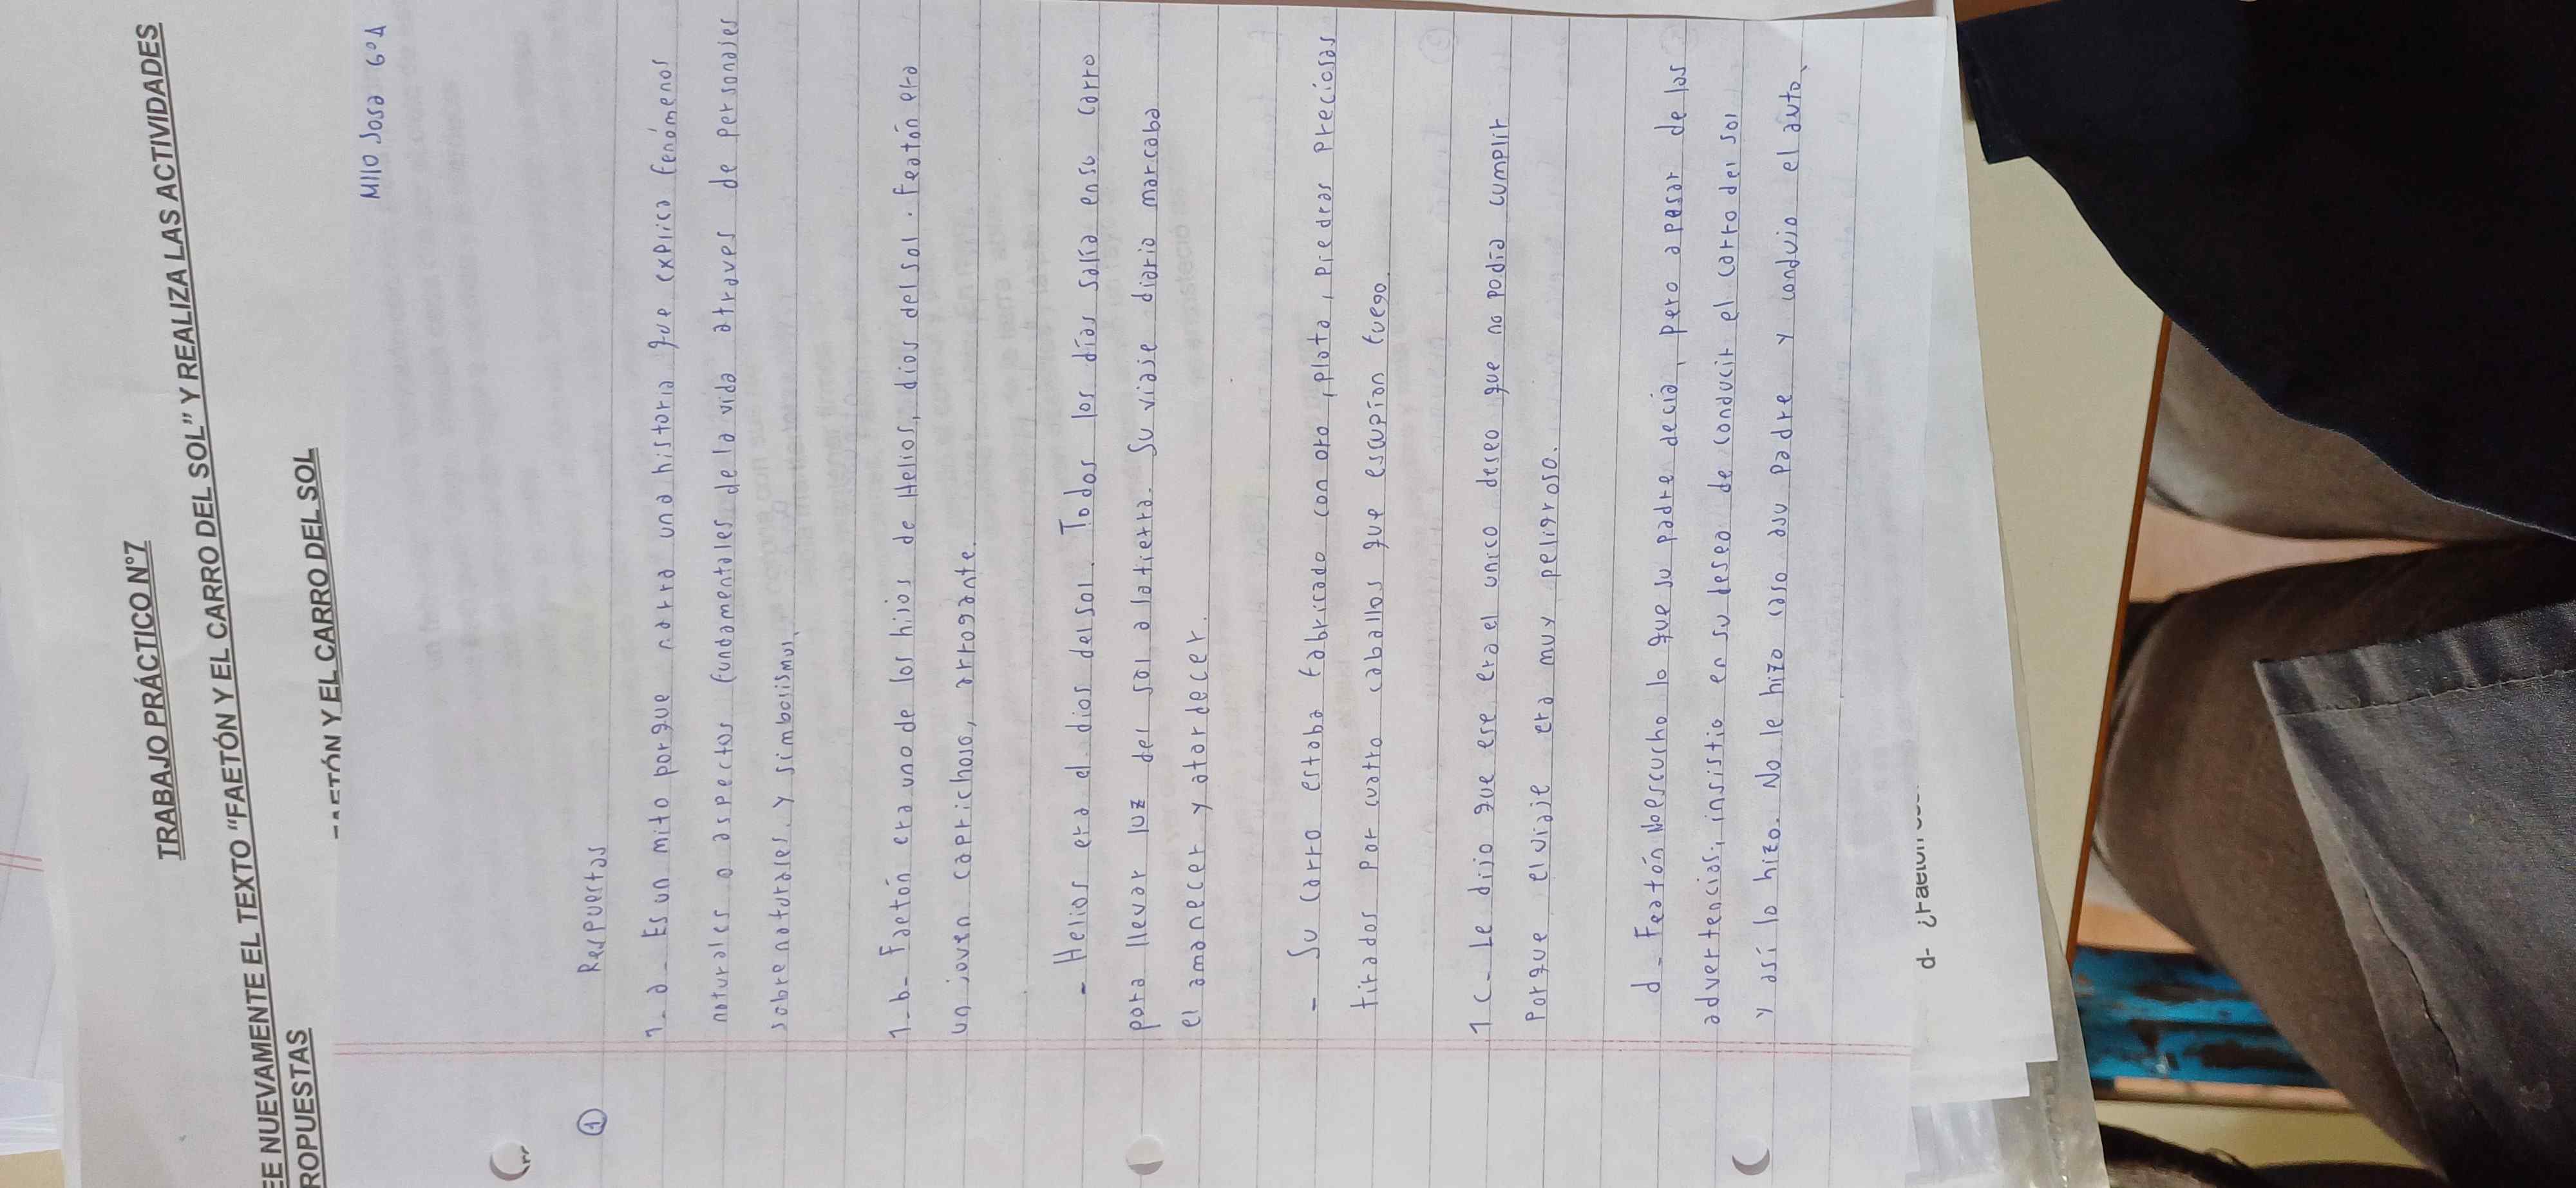 TRABAJO PRÁCTICO N°7
EE NUEVAMENTE EL TEXTO “FAETÓN Y EL CARRO DEL SOL” Y REALIZA LAS ACTIVIDADES
ROPUESTAS
FAETÓN Y EL CARRO DEL SOL
Milo Sosa 6°A
① Respuestas
1_a_ Es un mito porque narra una historia que explica fenómenos
naturales o aspectos fundamentales de la vida atraves de personajes
sobrenaturales y simbolismos.
1_b_ Faetón era uno de los hijos de Helios, dios del sol. Featón era
un joven caprichoso, arrogante.
- Helios era el dios del sol. Todos los días salía en su carro
para llevar luz del sol a la tierra. Su viaje diario marcaba
el amanecer y atardecer.
- Su carro estaba fabricado con oro, plata, piedras preciosas
tirados por cuatro caballos que escupían fuego.
1 c_ Le dijo que ese era el unico deseo que no podía cumplir
porque el viaje era muy peligroso.
d_ Featón No escucho lo que su padre decia, pero a pesar de las
advertencias, insistio en su deseo de conducir el carro del sol
y así lo hizo. No le hizo caso a su padre y condujo el auto.
d- ¿Faetón